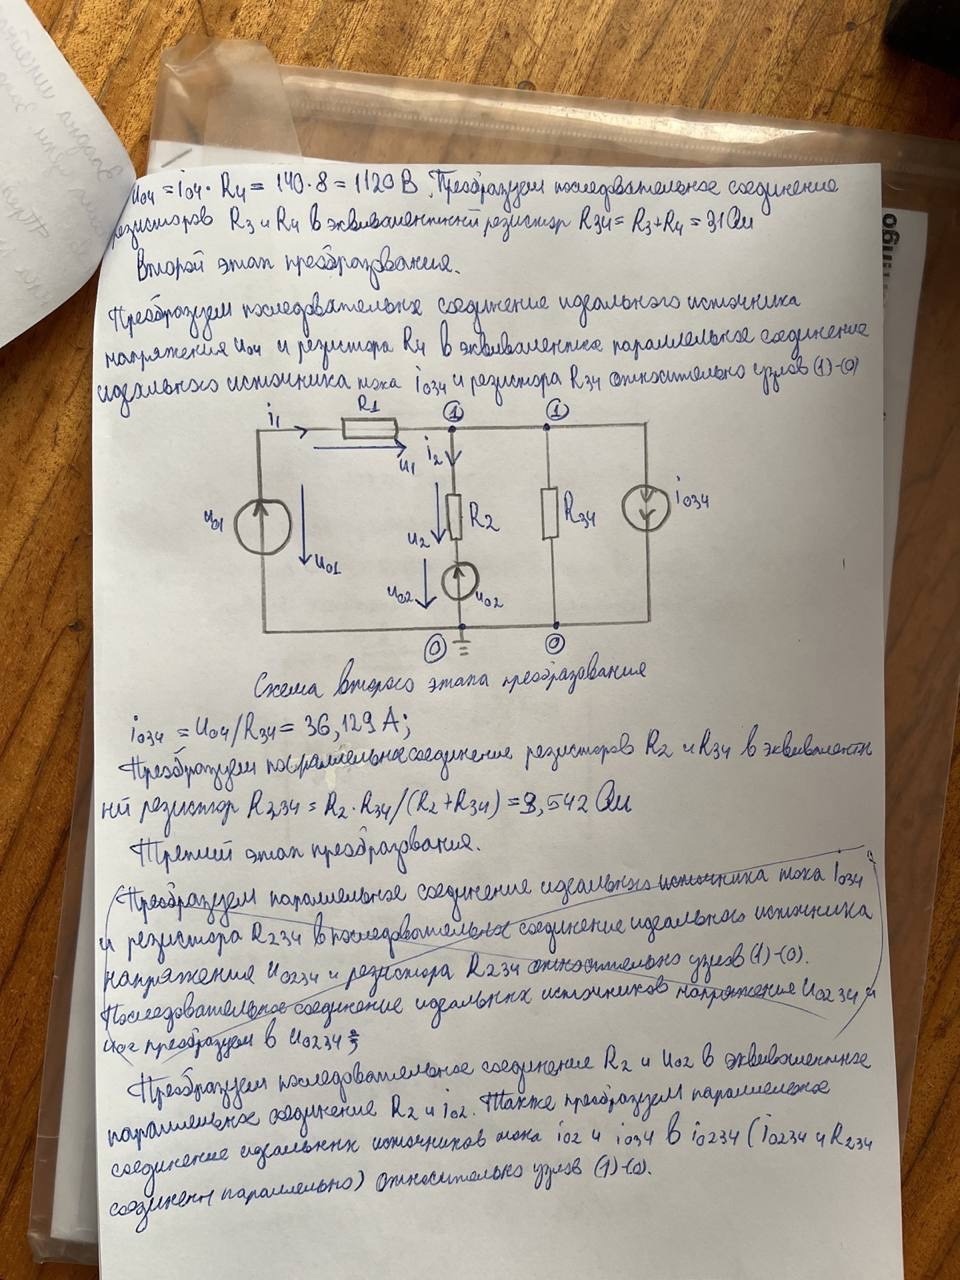 u04 = i04 · R4 = 140 · 8 = 1120 В. Преобразуем последовательное соединение
резисторов R3 и R4 в эквивалентный резистор R34 = R3+R4 = 31 Ом
Второй этап преобразования.
Преобразуем последовательное соединение идеального источника
напряжения u04 и резистора R4 в эквивалентное параллельное соединение
идеального источника тока i034 и резистора R34 относительно узлов (1)-(0)
i1
R1
1
1
u1
i2
u01
u01
R2
u2
u02
u02
R34
i034
0
0
Схема второго этапа преобразования
i034 = u04/R34 = 36,129 А;
Преобразуем параллельное соединение резисторов R2 и R34 в эквивалентн
ый резистор R234 = R2 · R34/(R2+R34) = 9,542 Ом
Третий этап преобразования.
(Преобразуем параллельное соединение идеального источника тока i034
и резистора R234 в последовательное соединение идеального источника
напряжение u0234 и резистора R234 относительно узлов (1)-(0).
Последовательное соединение идеальных источников напряжение u0234 и
u02 преобразуем в u0234
Преобразуем последовательное соединение R2 и u02 в эквивалентное
параллельное соединение R2 и i02. Также преобразуем параллельное
соединение идеальных источников тока i02 и i034 в i0234 (i0234 и R234
соединены параллельно) относительно узлов (1)-(0).